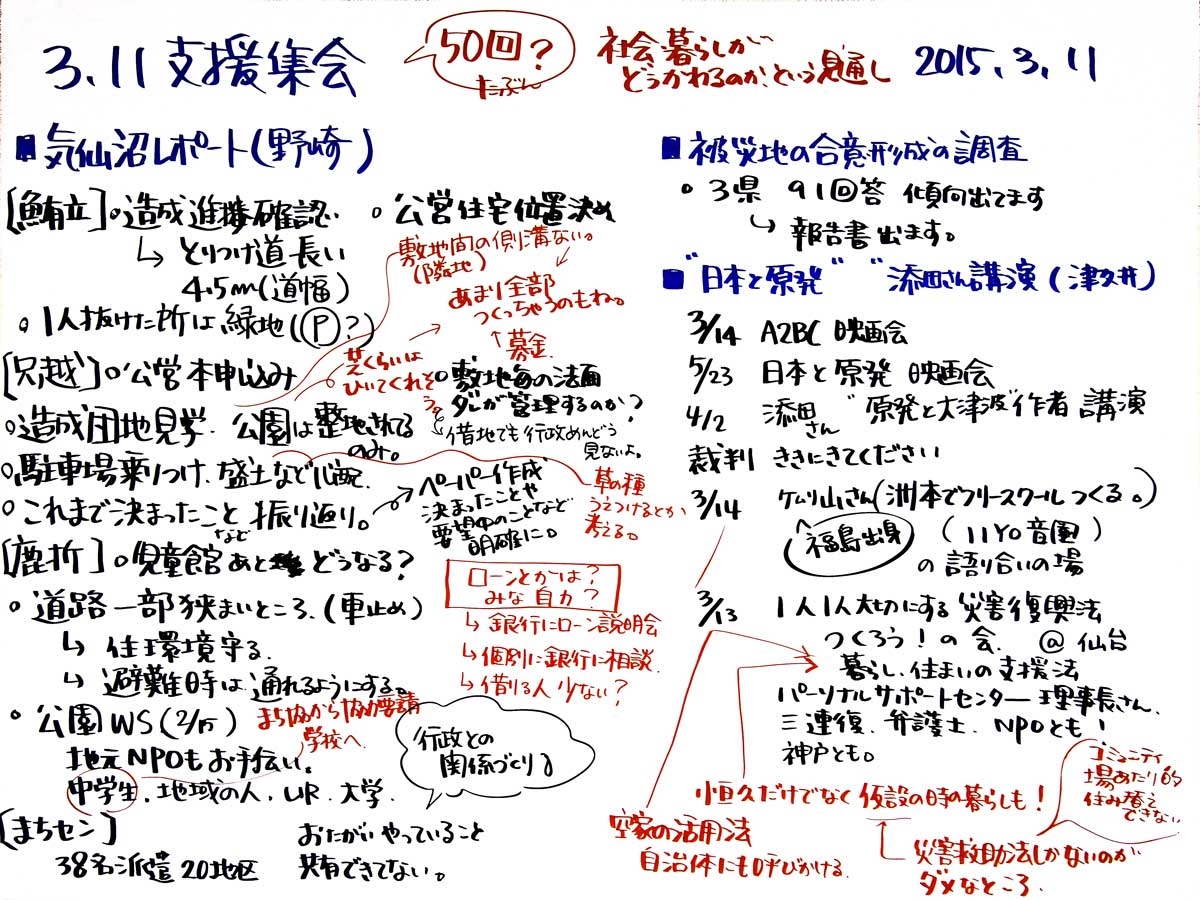 3.11支援集会
50回?
たぶん
社会暮らしが
どうかわるのか、という見通し
2015.3.11
■気仙沼レポート(野崎)
[鮪立]○造成進捗確認
↳とりつけ道長い
4.5m(道幅)
○1人抜けた所は緑地(Ⓟ?)
○公営住宅位置決め
敷地間の側溝ない。
(隣地)
あまり全部
つくっちゃうのもね。
↑募金
芝くらいは
ひいてくれそう。
[只越]○公営本申込み
○造成団地見学.公園は整地されてる
のみ。
○駐車場乗りつけ.盛土など心配.
○これまで決まったことなど振り返り。
→ペーパー作成
決まったことや
要望中のことなど
明確に。
○敷地毎の法面
ダレが管理するのか?
借地でも行政めんどう
見ないよ。
草の種
うえつけるとか
考える。
[鹿折]○児童館あとどうなる?
○道路一部狭いところ.(車止め)
↳住環境守る.
↳避難時は通れるようにする。
○公園WS(2/15)
まち協から協力要請
学校へ.
地元NPOもお手伝い。
中学生.地域の人.UR.大学.
ローンとかは?
みな自力?
↳銀行にローン説明会
↳個別に銀行に相談.
↳借りる人少ない?
行政との
関係づくり
[まちセン]
38名派遣20地区
おたがいやっていること
共有できてない。
■被災地の合意形成の調査
○3県 91回答 傾向出てます
↳報告書出ます。
■"日本と原発" "添田さん講演(津久井)
3/14 A2BC 映画会
5/23 日本と原発 映画会
4/2 添田さん "原発と大津波"作者 講演
裁判 ききにきてください
3/14 ケムリ山さん(洲本でフリースクールつくる。)
福島出身
(11YO音園)
の語り合いの場
3/13 1人1人大切にする災害復興法
つくろう!の会. @仙台
暮らし.住まいの支援法
パーソナルサポートセンター理事長さん.
三連復.弁護士.NPOとも!
神戸とも。
恒久だけでなく仮設の時の暮らしも!
空家の活用法
自治体にも呼びかける.
災害救助法しかないのが
ダメなところ.
コミュニティ
場あたり的
住み替え
できない